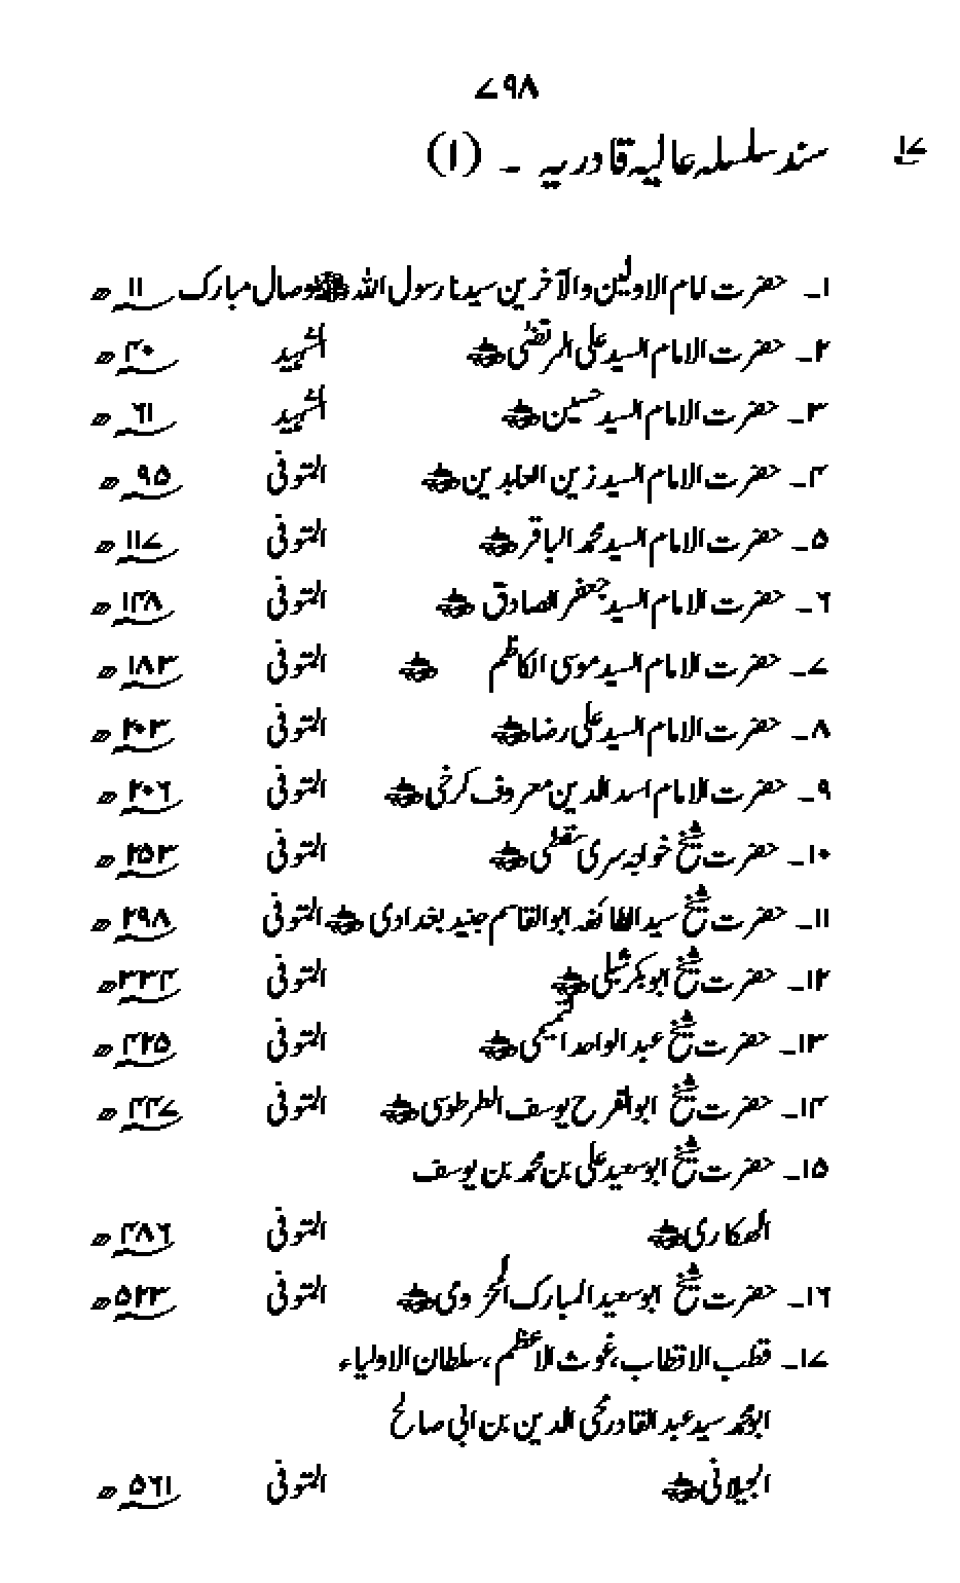 ۷۹۸
۱۷ سند سلسلہ عالیہ قادریہ ۔ (۱)
۱۔ حضرت امام الاولین والآخرین سیدنا رسول اللہ ﷺ وصال مبارک ۱۱ ھ
۲۔ حضرت الامام السید علی المرتضٰی ؓ الشہید ۴۰ ھ
۳۔ حضرت الامام السید حسین ؓ الشہید ۶۱ ھ
۴۔ حضرت الامام السید زین العابدین ؓ المتوفی ۹۵ ھ
۵۔ حضرت الامام السید محمد الباقر ؓ المتوفی ۱۱۷ ھ
۶۔ حضرت الامام السید جعفر الصادق ؓ المتوفی ۱۴۸ ھ
۷۔ حضرت الامام السید موسی الکاظم ؓ المتوفی ۱۸۳ ھ
۸۔ حضرت الامام السید علی رضا ؓ المتوفی ۲۰۳ ھ
۹۔ حضرت الامام اسد الدین معروف کرخی ؓ المتوفی ۲۰۶ ھ
۱۰۔ حضرت شیخ خواجہ سری سقطی ؓ المتوفی ۲۵۳ ھ
۱۱۔ حضرت شیخ سید الطائفہ ابوالقاسم جنید بغدادی ؓ المتوفی ۲۹۸ ھ
۱۲۔ حضرت شیخ ابوبکر شبلی ؓ المتوفی ۳۳۴ ھ
۱۳۔ حضرت شیخ عبد الواحد التمیمی ؓ المتوفی ۴۲۵ ھ
۱۴۔ حضرت شیخ ابوالفرح یوسف الطرطوسی ؓ المتوفی ۴۴۷ ھ
۱۵۔ حضرت شیخ ابوسعید علی بن محمد بن یوسف
الھکاری ؓ المتوفی ۴۸۶ ھ
۱۶۔ حضرت شیخ ابوسعید المبارک المخزومی ؓ المتوفی ۵۲۳ ھ
۱۷۔ قطب الاقطاب، غوث الاعظم، سلطان الاولیاء
ابومحمد سید عبد القادر محی الدین بن ابی صالح
الجیلانی ؓ المتوفی ۵۶۱ ھ